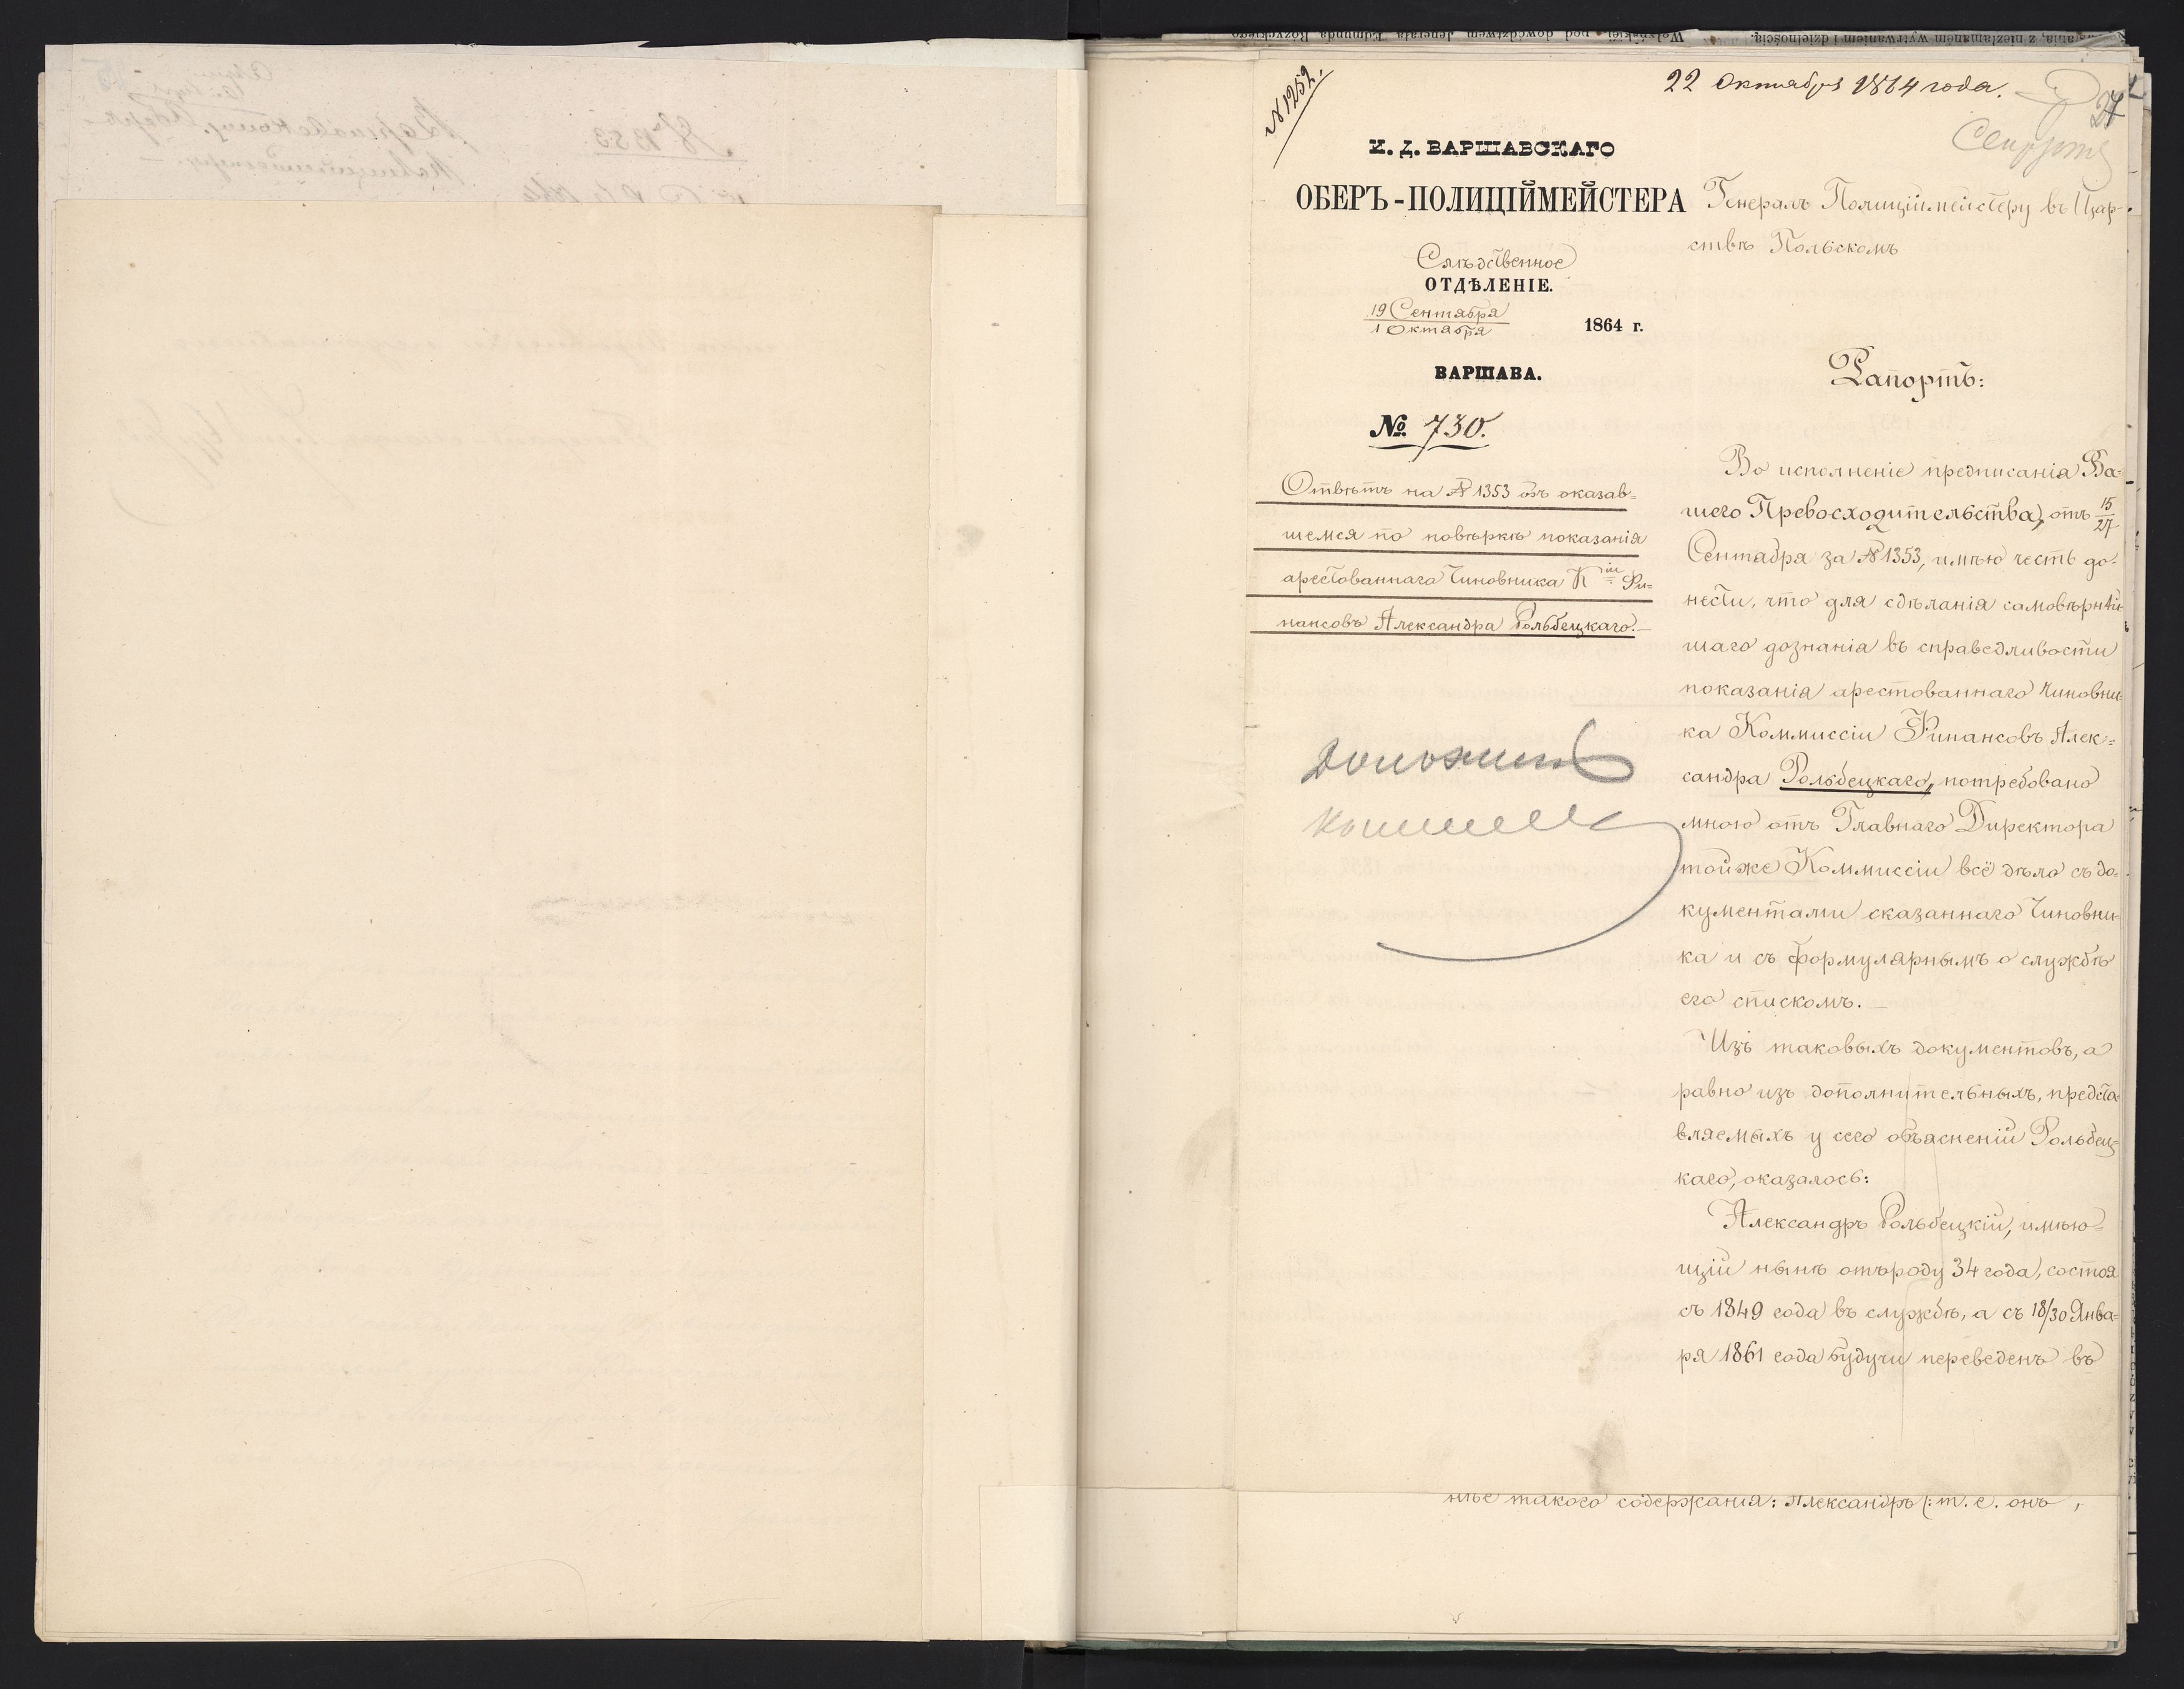 № 1252.
22 Октября 1864 года.
27
И. Д. ВАРШАВСКАГО
ОБЕРЪ-ПОЛИЦІЙМЕЙСТЕРА
Слѣдственное
ОТДѢЛЕНІЕ.
19 Сентября
1 Октября
1864 г.
ВАРШАВА.
№ 730.
Отвѣтъ на № 1353 объ оказав=
шемся по повѣркѣ показанія
арестованнаго Чиновника К.іи Фи=
нансовъ Александра Рольбецкаго.—
Доложить
Генералъ Полиціймейстеру въ Цар-
ствѣ Польскомъ
Рапортъ:
Во исполненіе предписанія Ва=
шего Превосходительства, отъ 15/27
Сентября за № 1353, имѣю честь до=
нести, что для сдѣланія самовѣрнѣй
шаго дознанія въ справедливости
показанія арестованнаго Чиновни=
ка Коммиссіи Финансовъ Алек=
сандра Рольбецкаго, потребовано
мною отъ Главнаго Директора
тойже Коммиссіи всё дѣло съ до=
кументами сказаннаго Чиновни=
ка и съ формулярнымъ о службѣ
его спискомъ.—
Изъ таковыхъ документовъ, а
равно изъ дополнительныхъ, предста=
вляемыхъ у сего объясненій Рольбец=
каго, оказалось:
Александръ Рольбецкій, имѣю=
щій нынѣ отъ роду 34 года, состоя
съ 1849 года въ службѣ, а съ 18/30 Янва=
ря 1861 года будучи переведенъ въ
нѣе такого содержанія: Александръ (: т. е. онъ,